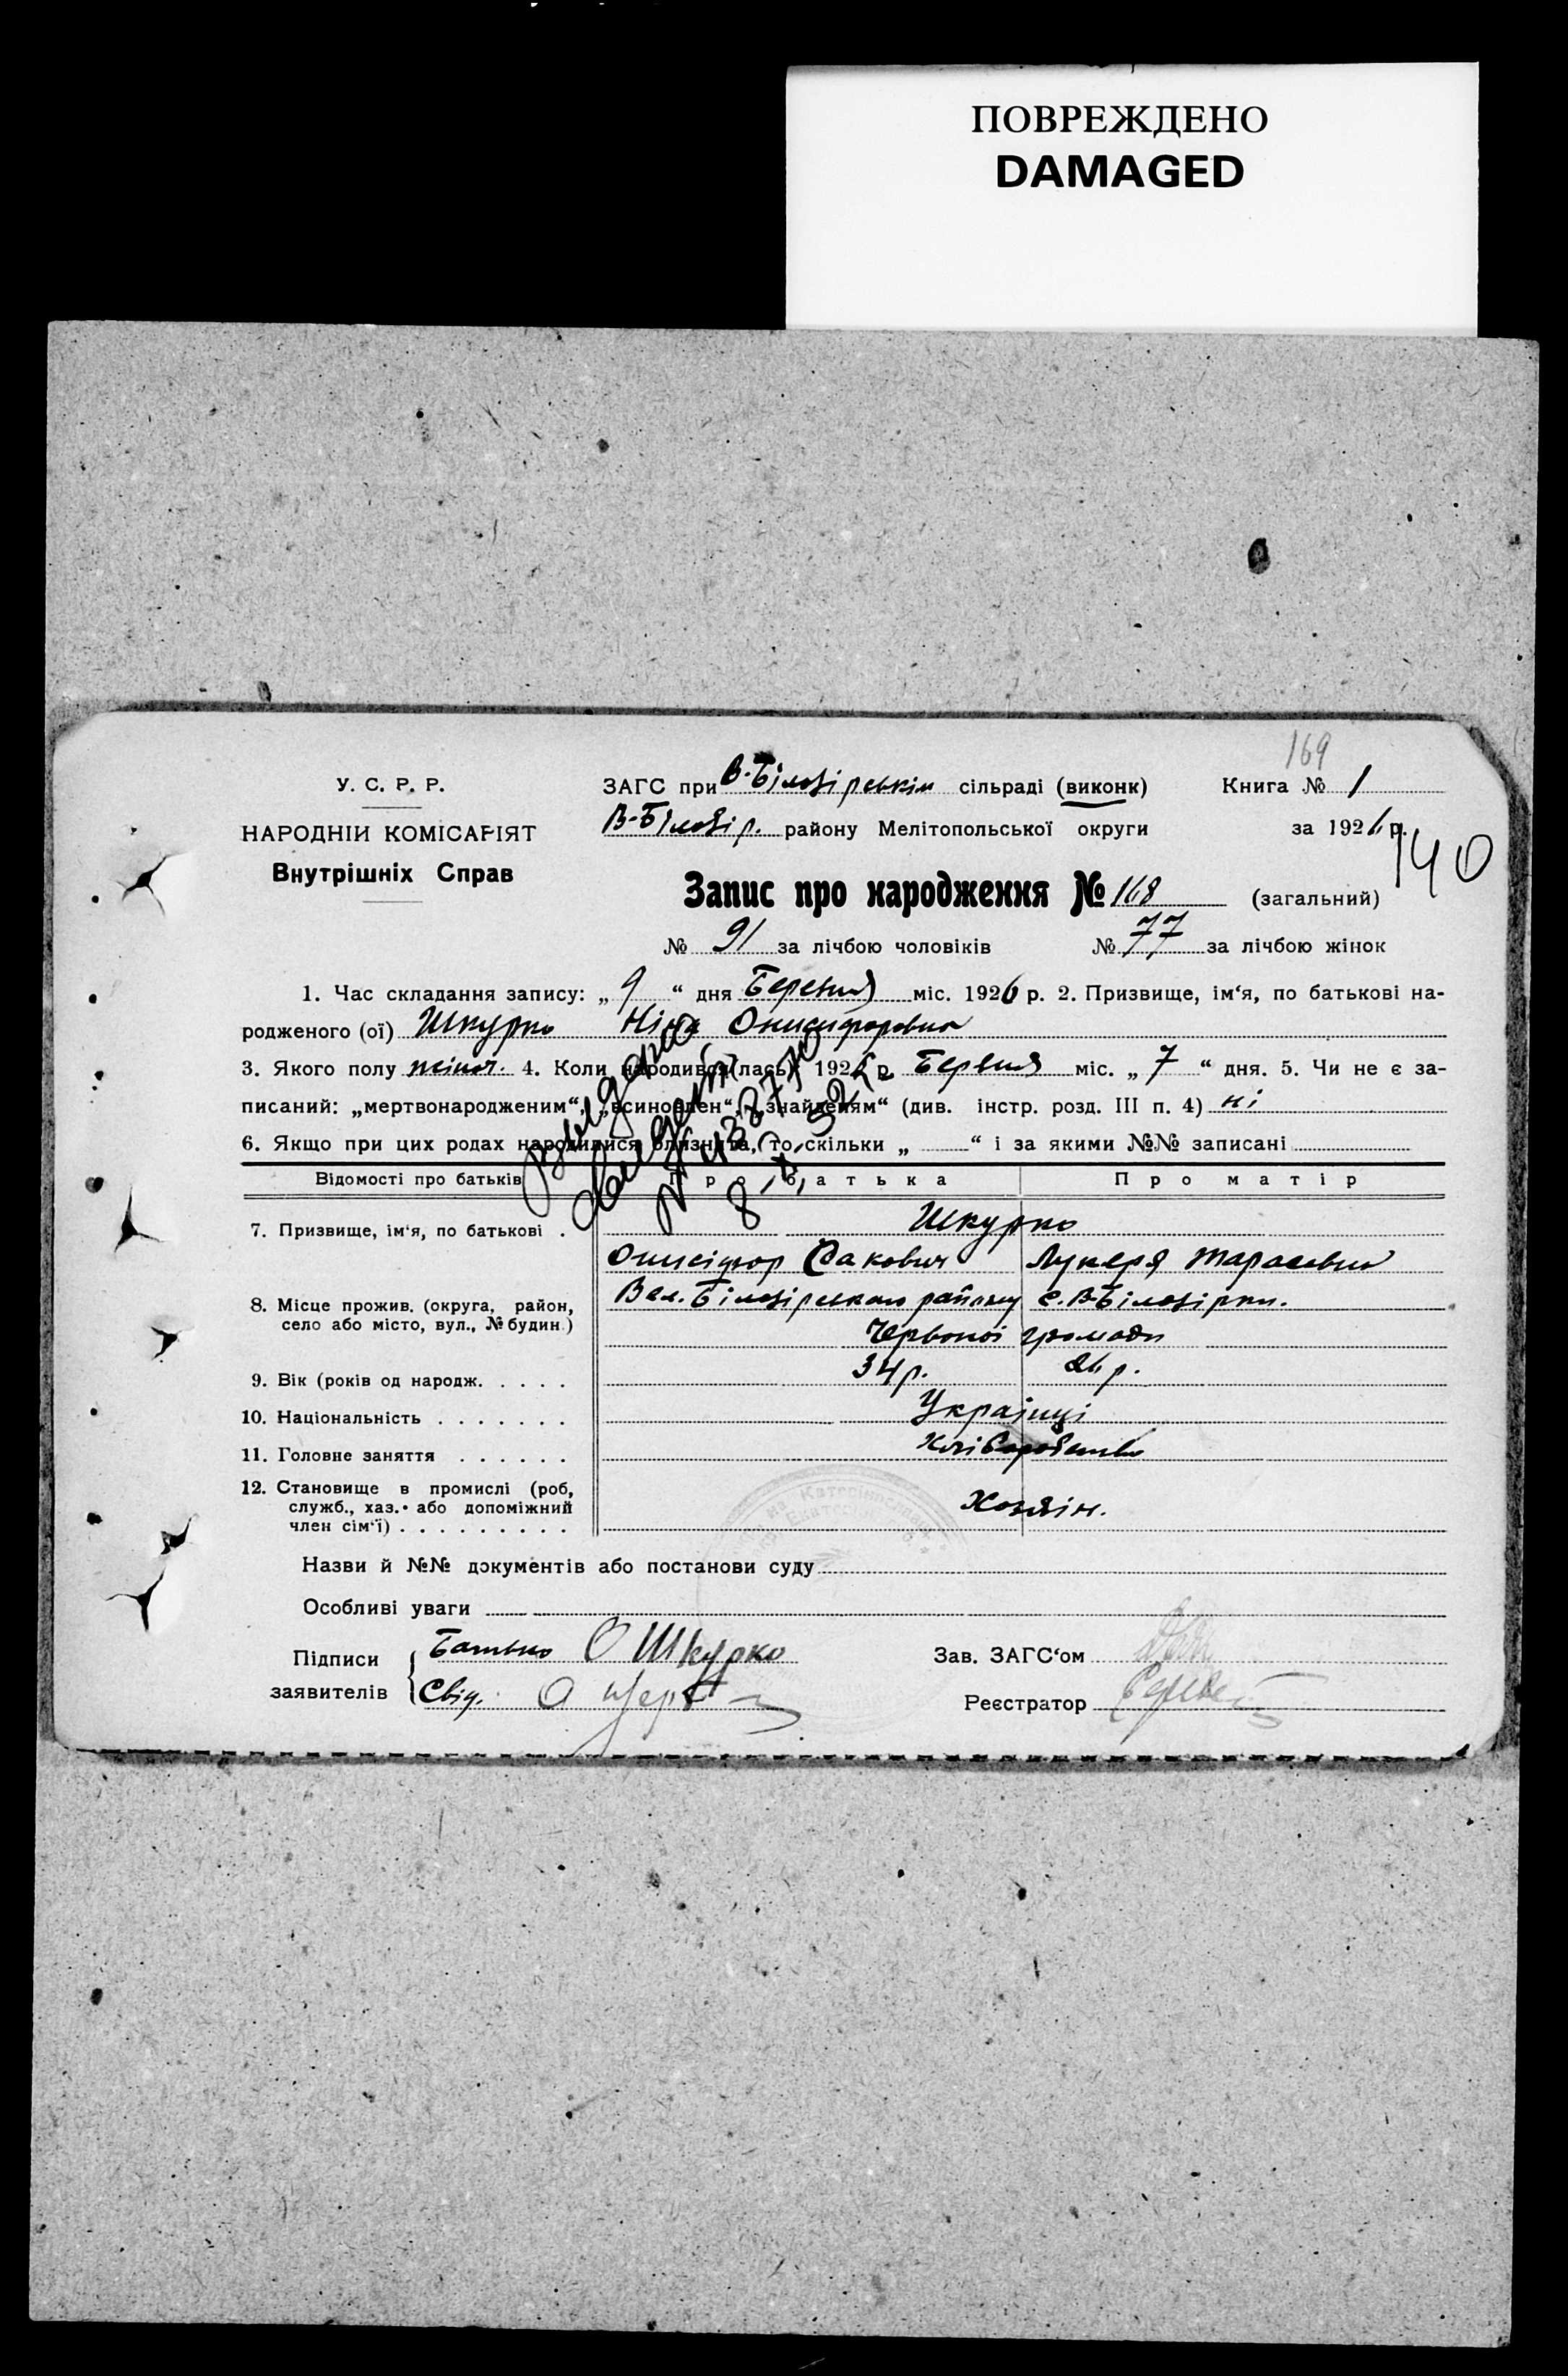 ПОВРЕЖДЕНО
DAMAGED
169
У. С. Р. Р.
НАРОДНІЙ КОМІСАРІЯТ
Внутрішніх Справ
ЗАГС при В-Білозірськім сільраді (виконк)
Книга № 1
В-Білозір. району Мелітопольської округи
за 1926 р.
140
Запис про народження № 168 (загальний)
№ 91 за лічбою чоловіків № 77 за лічбою жінок
1. Час складання запису: „ 9 “ дня Березня міс. 1926 р. 2. Призвище, ім‘я, по батькові на-
родженого (ої) Шкурко Ніна Онисифоровна
3. Якого полу жіноч. 4. Коли народився(лась) 1926 р. Березня міс. „ 7 “ дня. 5. Чи не є за-
писаний: „мертвонародженим“, „всиновлен“, „знайденям“ (див. інстр. розд. III п. 4) ні
6. Якщо при цих родах народилися близнята, то скільки „ “ і за якими №№ записані
Відомості про батьків Про батька Про матір
7. Призвище, ім‘я, по батькові . Шкурко
Онисіфор Сакович Лукеря Тарасовна
8. Місце прожив. (округа, район,
село або місто, вул., № будин.)
Вел. Білозірського району с. В-Білозірки.
Червоної громади
9. Вік (років од народж. . . . . 34 р. 26 р.
10. Національність . . . . . . . Українці
11. Головне заняття . . . . . . Хліборобство
12. Становище в промислі (роб,
служб., хаз. або допоміжний
член сім‘ї) . . . . . . . . .
Хозяін.
Назви й №№ документів або постанови суду
Особливі уваги
Підписи
заявителів
Батько О Шкурко
Свід.
Зав. ЗАГС‘ом
Реєстратор